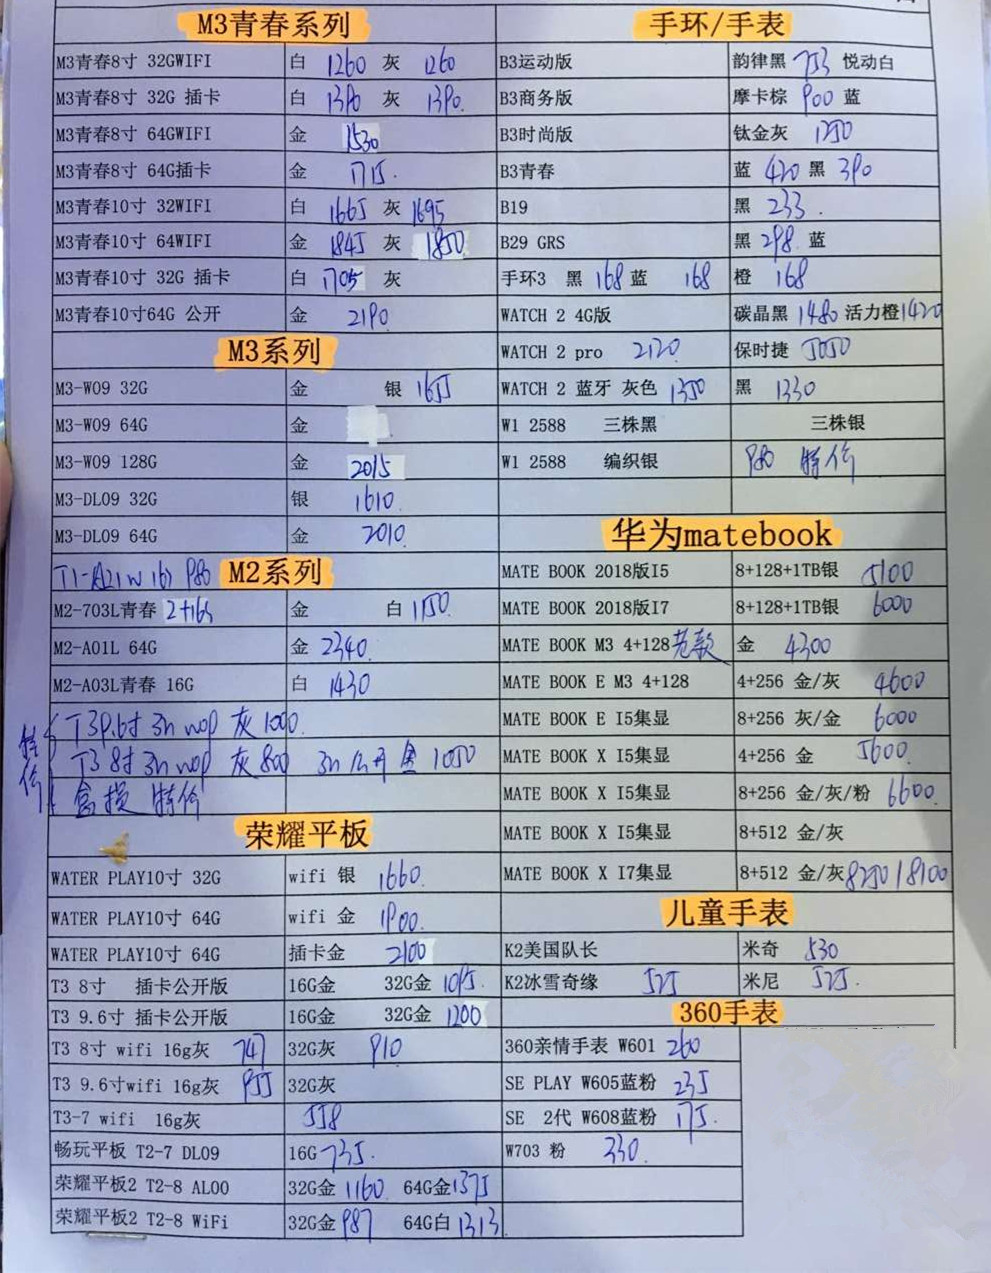 M3青春系列
M3青春8寸 32GWIFI 白 1260 灰 1260
M3青春8寸 32G 插卡 白 1390 灰 1390.
M3青春8寸 64GWIFI 金 1530
M3青春8寸 64G插卡 金 1715.
M3青春10寸 32WIFI 白 1665 灰 1695
M3青春10寸 64WIFI 金 1845 灰 1850
M3青春10寸 32G 插卡 白 1705 灰
M3青春10寸64G 公开 金 2190
M3系列
M3-W09 32G 金 银 1655
M3-W09 64G 金
M3-W09 128G 金 2015
M3-DL09 32G 银 1610
M3-DL09 64G 金 2010
T1-A21W 16G 980 M2系列
M2-703L青春 2+16G 金 白 1150
M2-A01L 64G 金 2340
M2-A03L青春 16G 白 1430
特价
T3 9.6寸 3n wop 灰 1000
T3 8寸 3n wop 灰 800 3n 公开 金 1050
盒损 特价
荣耀平板
WATER PLAY10寸 32G wifi 银 1660
WATER PLAY10寸 64G wifi 金 1900.
WATER PLAY10寸 64G 插卡金 2100
T3 8寸 插卡公开版 16G金 32G金 1095
T3 9.6寸 插卡公开版 16G金 32G金 1200
T3 8寸 wifi 16g灰 747 32G灰 910
T3 9.6寸wifi 16g灰 955 32G灰
T3-7 wifi 16g灰 558
畅玩平板 T2-7 DL09 16G 735.
荣耀平板2 T2-8 AL00 32G金 1160 64G金 1375
荣耀平板2 T2-8 WiFi 32G金 987 64G白 1313
手环/手表
B3运动版 韵律黑 753 悦动白
B3商务版 摩卡棕 900 蓝
B3时尚版 钛金灰 1250
B3青春 蓝 420 黑 390
B19 黑 233.
B29 GRS 黑 298 蓝
手环3 黑 168 蓝 168 橙 168
WATCH 2 4G版 碳晶黑 1480 活力橙 1420
WATCH 2 pro 2120 保时捷 5050
WATCH 2 蓝牙 灰色 1350 黑 1330
W1 2588 三株黑 三株银
W1 2588 编织银 980 特价
华为matebook
MATE BOOK 2018版I5 8+128+1TB银 5100
MATE BOOK 2018版I7 8+128+1TB银 6000
MATE BOOK M3 4+128 老款 金 4300
MATE BOOK E M3 4+128 4+256 金/灰 4600
MATE BOOK E I5集显 8+256 灰/金 6000
MATE BOOK X I5集显 4+256 金 5600
MATE BOOK X I5集显 8+256 金/灰/粉 6600
MATE BOOK X I5集显 8+512 金/灰
MATE BOOK X I7集显 8+512 金/灰 8250/8100
儿童手表
K2美国队长 米奇 530
K2冰雪奇缘 525 米尼 525.
360手表
360亲情手表 W601 260
SE PLAY W605蓝粉 235
SE 2代 W608蓝粉 175.
W703 粉 330.